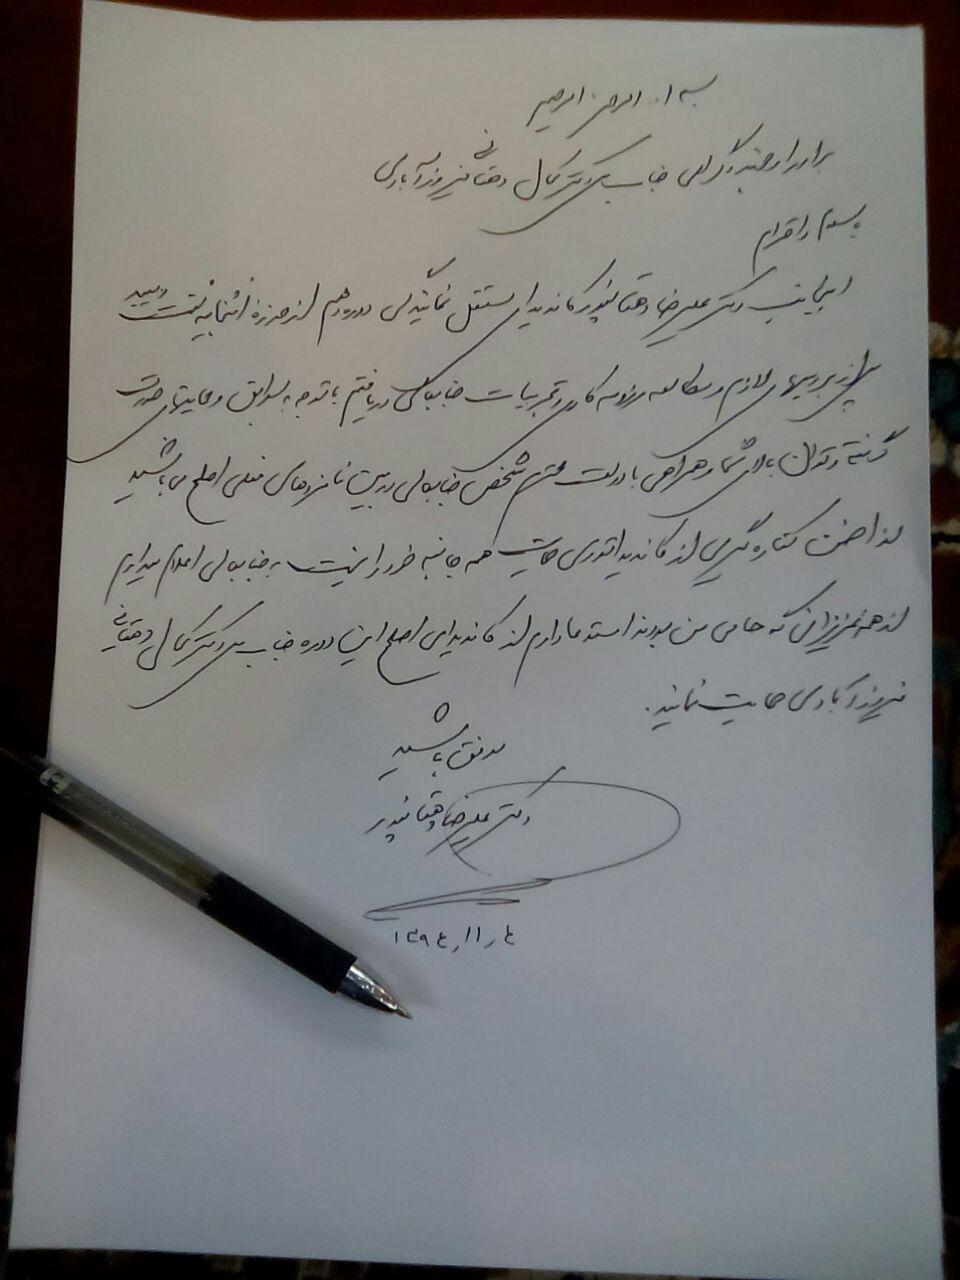 بسم ا.. الرحمن الرحیم
برادر ارجمند و گرامی جناب آقای دکتر کمال دهقانی فیروزآبادی
با سلام و احترام
اینجانب دکتر علیرضا دهقانپور کاندیدای مستقل نمایندگی دوره دهم از حوزه انتخابیه تفت و میبد
پس از بررسیهای لازم و مطالعه رزومه کاری و تجربیات جنابعالی دریافتم با توجه به سوابق و حمایتهای صورت
گرفته و توان بالای شما و همراهی با دولت محترم شخص جنابعالی در بین نامزدهای فعلی اصلح می باشید
لذا ضمن کناره گیری از کاندیداتوری حمایت همه جانبه خود را نسبت به جنابعالی اعلام میدارم
از همه عزیزانی که حامی من بودند استدعا دارم از کاندیدای اصلح این دوره جناب آقای دکتر کمال دهقانی
فیروزآبادی حمایت نمایند.
موفق باشید
دکتر علیرضا دهقانپور
۱۳۹۴/۱۱/۴